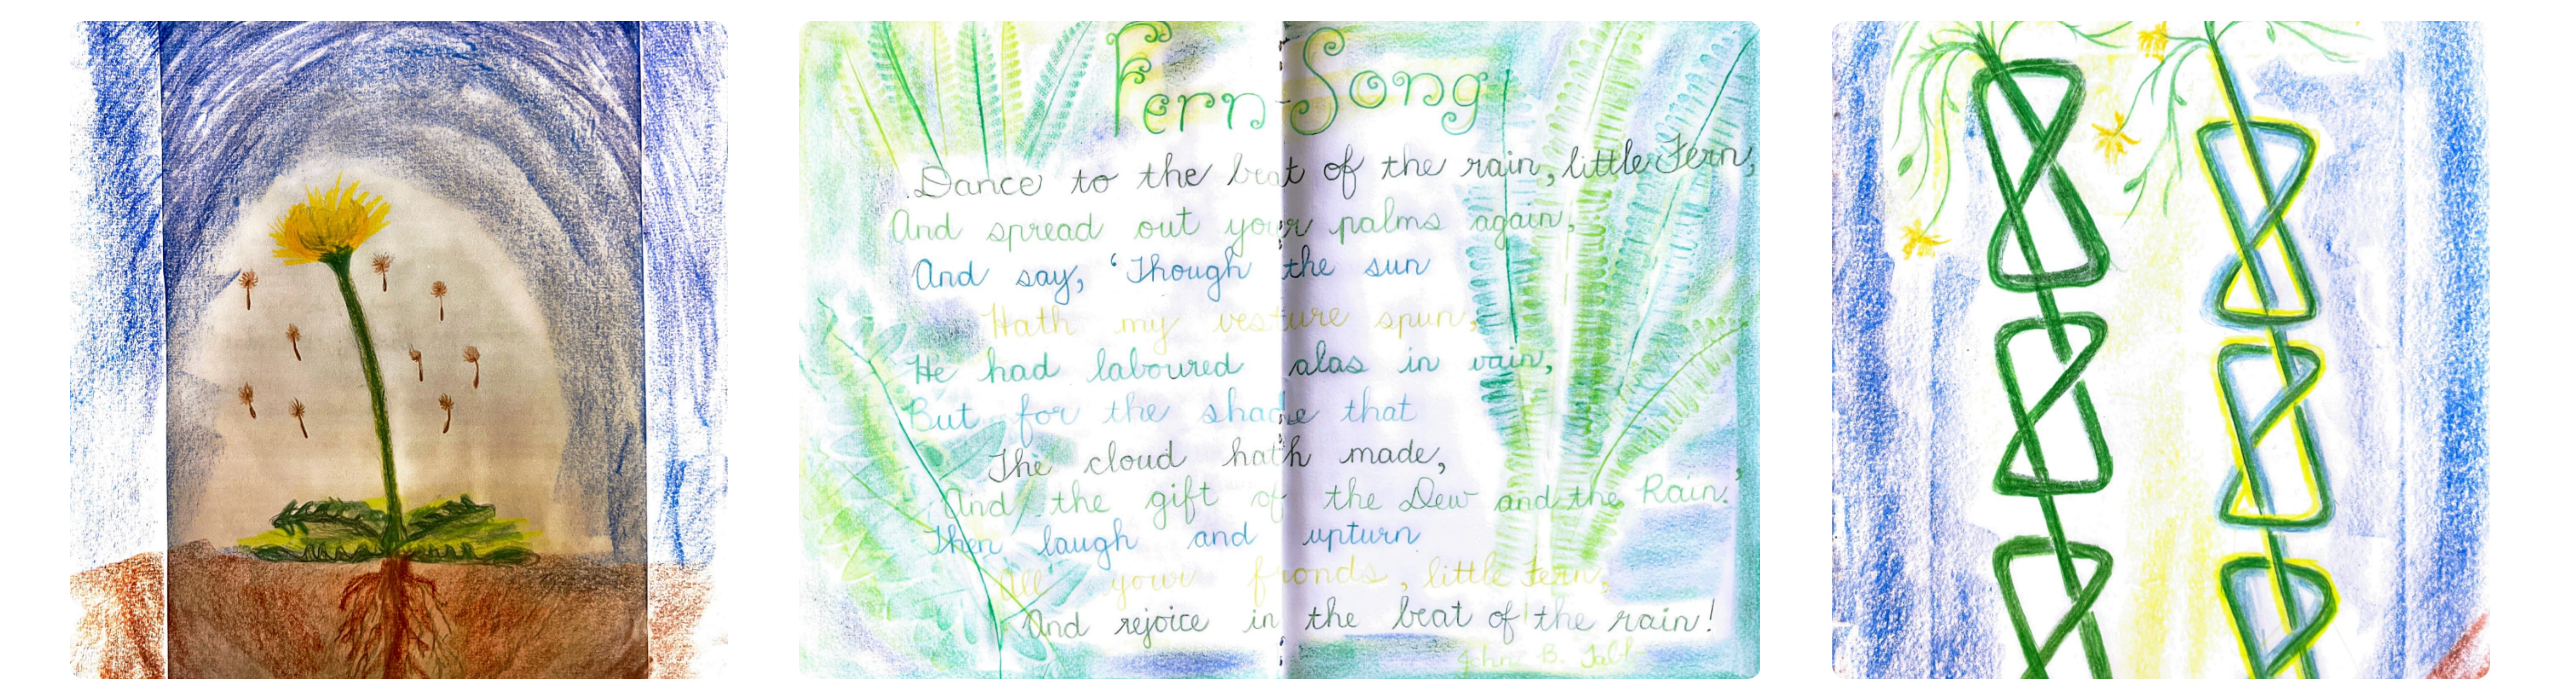 Fern Song
Dance to the beat of the rain, little Fern,
And spread out your palms again,
And say, 'Though the sun
Hath my vesture spun,
He had laboured alas in vain,
But for the shade that
The cloud hath made,
And the gift of the Dew and the Rain.'
Then laugh and upturn
All your fronds, little Fern,
And rejoice in the beat of the rain!
John B.